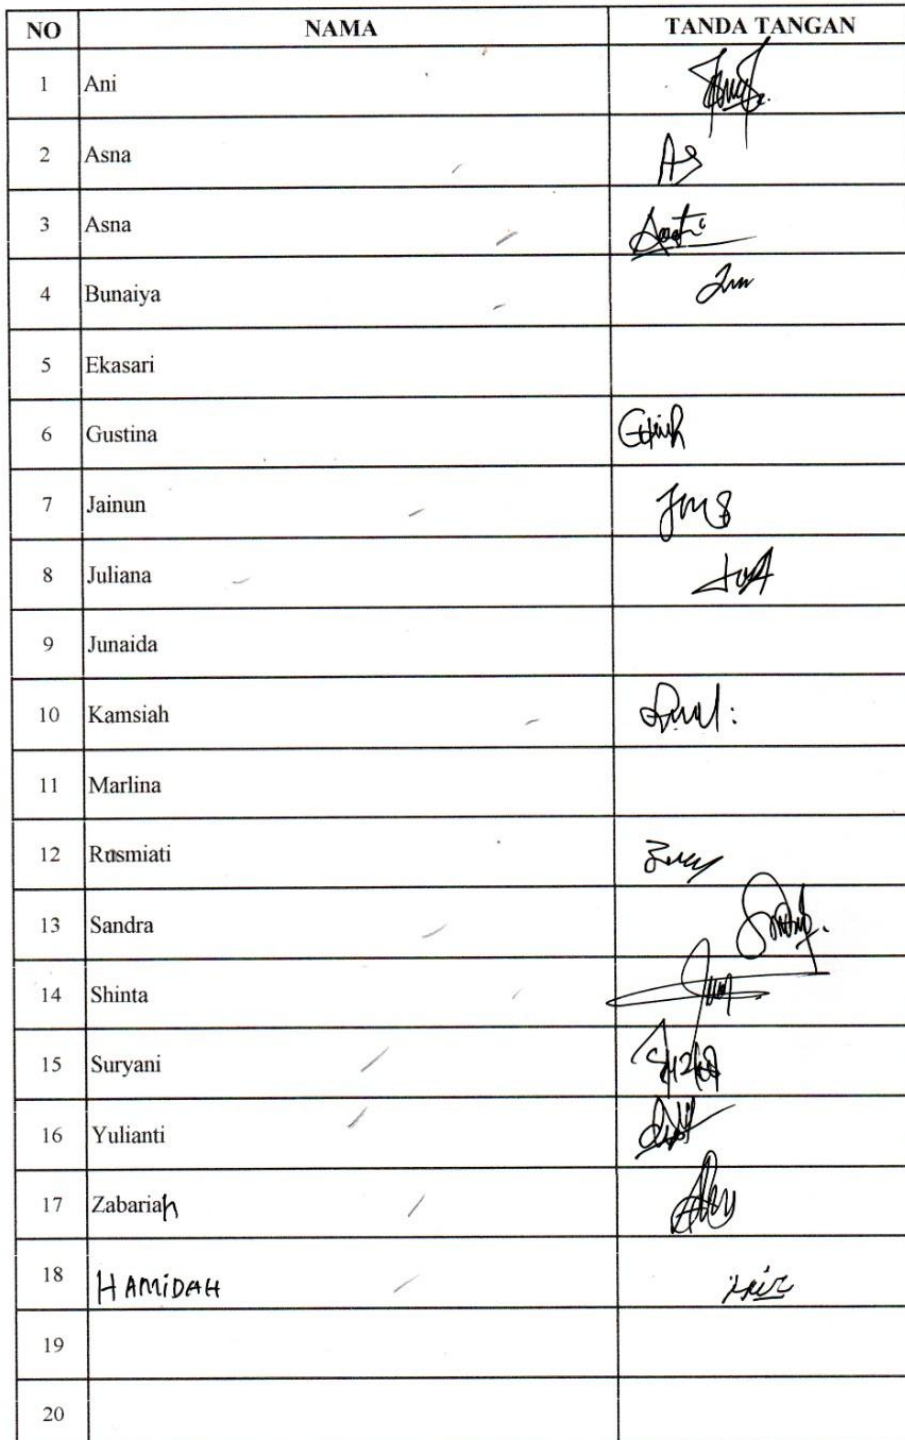 NO NAMA TANDA TANGAN
1 Ani
2 Asna As
3 Asna
4 Bunaiya
5 Ekasari
6 Gustina
7 Jainun
8 Juliana
9 Junaida
10 Kamsiah
11 Marlina
12 Rusmiati
13 Sandra
14 Shinta
15 Suryani
16 Yulianti
17 Zabariah
18 HAMiDAH
19
20